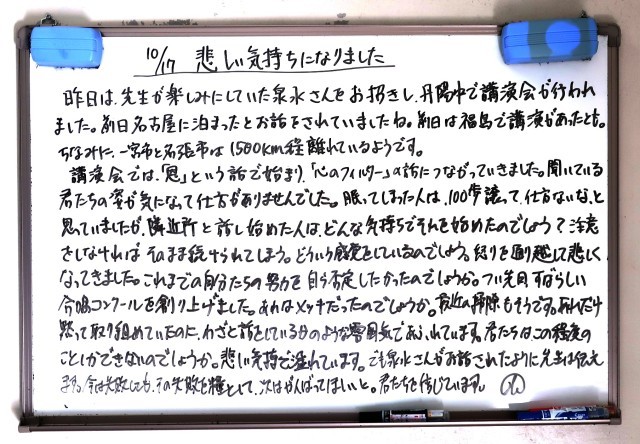 10/17 悲しい気持ちになりました
昨日は、先生が楽しみにしていた泉水さんをお招きし、丹陽中で講演会が行われ
ました。前日名古屋に泊まったとお話をされていましたね。前日は福島で講演があったとも。
ちなみに、一宮市と名張市は1500km程離れているようです。
講演会では、「恩」という話で始まり、「心のフィルター」の話につながっていきました。聞いている
君たちの姿が気になって仕方がありませんでした。眠ってしまった人は、100歩譲って、仕方ないな、と
思っていましたが、隣近所と話し始めた人は、どんな気持ちでそれを始めたのでしょう?注意
をしなければ そのまま続けられてしまう。どういう感覚をしているのでしょう。怒りを通り越して悲しく
なってきました。これまでの自分たちの努力を自ら否定したかったのでしょうか。つい先日、すばらしい
合唱コンクールを創り上げました。あれはメッキだったのでしょうか。最近の掃除もそうです。あれだけ
黙って取り組めていたのに、わざと話をしている日のような雰囲気であふれています。君たちはこの程度の
ことしかできないのでしょうか。悲しい気持で溢れています。でも泉水さんがお話されたように先生は伝え
ます。今は失敗しても、その失敗を糧として、次はがんばってほしいと。君たちを信じています。